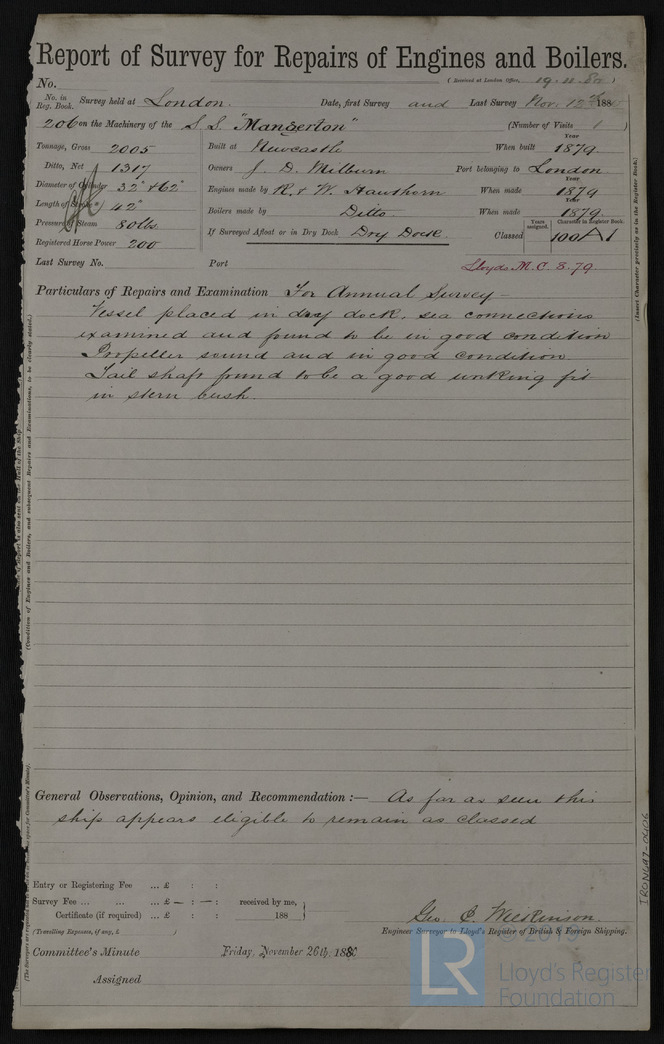 Report of Survey for Repairs of Engines and Boilers.
No. (Received at London Office, 19.11.80)
No. in Reg. Book. Survey held at London. Date, first Survey and Last Survey Nov. 12th 1880
206 on the Machinery of the S.S. "Mangerton" (Number of Visits 1 )
Tonnage, Gross 2005 Built at Newcastle When built Year 1879
Ditto, Net 1317 Owners J. D. Milburn Port belonging to London
Diameter of Cylinder 32" & 62" Engines made by R. & W. Hawthorn When made Year 1879
Length of Stroke 42" Boilers made by Ditto When made Year 1879
Pressure of Steam 80lbs If Surveyed Afloat or in Dry Dock Dry Dock Classed Years assigned. Character in Register Book. 100A1
Registered Horse Power 200
Last Survey No. Port Lloyds M.C. 8.79.
Particulars of Repairs and Examination For Annual Survey –
Vessel placed in dry dock, sea connections
examined and found to be in good condition
Propeller sound and in good condition.
Tail shaft found to be a good working fit
in stern bush.
General Observations, Opinion, and Recommendation :— As far as seen this
ship appears eligible to remain as classed
Entry or Registering Fee ... £ : :
Survey Fee ... ... £ — : — : received by me,
Certificate (if required) ... £ : : 188
(Travelling Expenses, if any, £ )
Geo. C. Wilkinson.
Engineer Surveyor to Lloyd's Register of British & Foreign Shipping.
Committee's Minute Friday, November 26th, 1880
Assigned
(Insert Character precisely as in the Register Book.)
IRON697-0406
LR
Lloyd's Register
Foundation